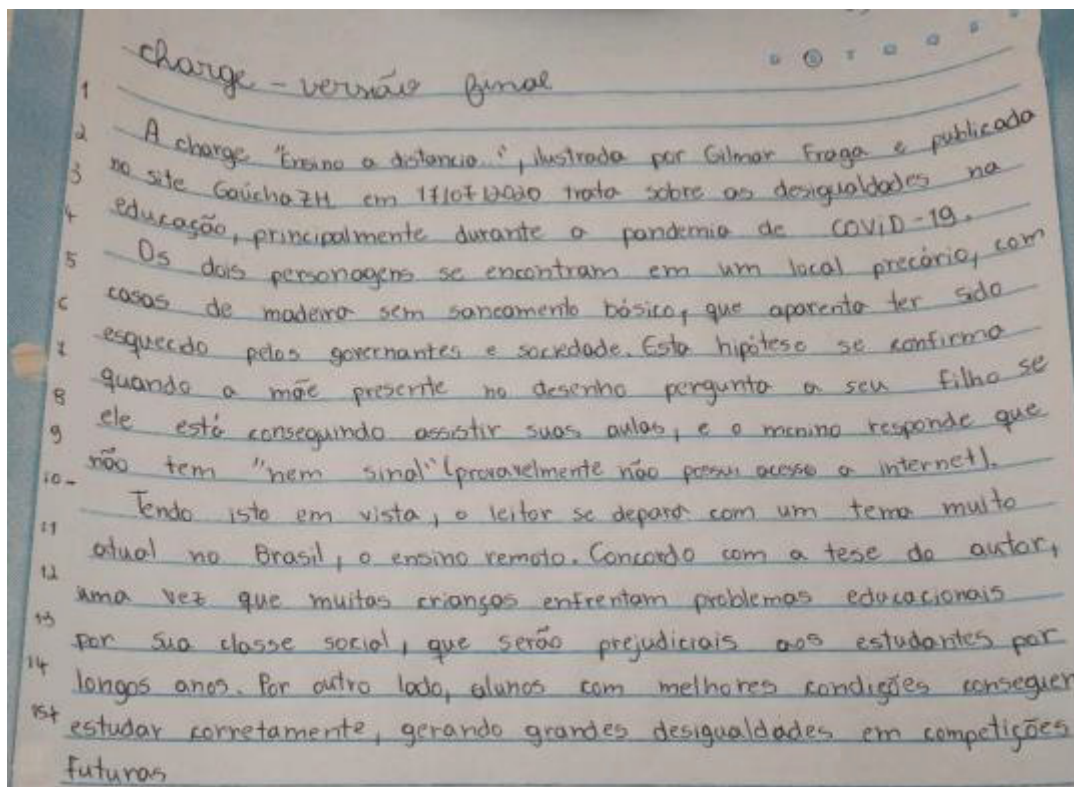 charge - versão final
1
2 A charge "Ensino a distancia.", ilustrada por Gilmar Fraga e publicada
3 no site GaúchaZH em 17/07/2020 trata sobre as desigualdades na
4 educação, principalmente durante a pandemia de COVID-19.
5 Os dois personagens se encontram em um local precário, com
6 casas de madeira sem saneamento básico, que aparenta ter sido
7 esquecido pelos governantes e sociedade. Esta hipótese se confirma
8 quando a mãe presente no desenho pergunta a seu filho se
9 ele está conseguindo assistir suas aulas, e o menino responde que
10 não tem "nem sinal" (provavelmente não possui acesso a internet).
11 Tendo isto em vista, o leitor se depara com um tema muito
12 atual no Brasil, o ensino remoto. Concordo com a tese do autor,
13 uma vez que muitas crianças enfrentam problemas educacionais
14 por sua classe social, que serão prejudiciais aos estudantes por
15+ longos anos. Por outro lado, alunos com melhores condições conseguem
estudar corretamente, gerando grandes desigualdades em competições
futuras